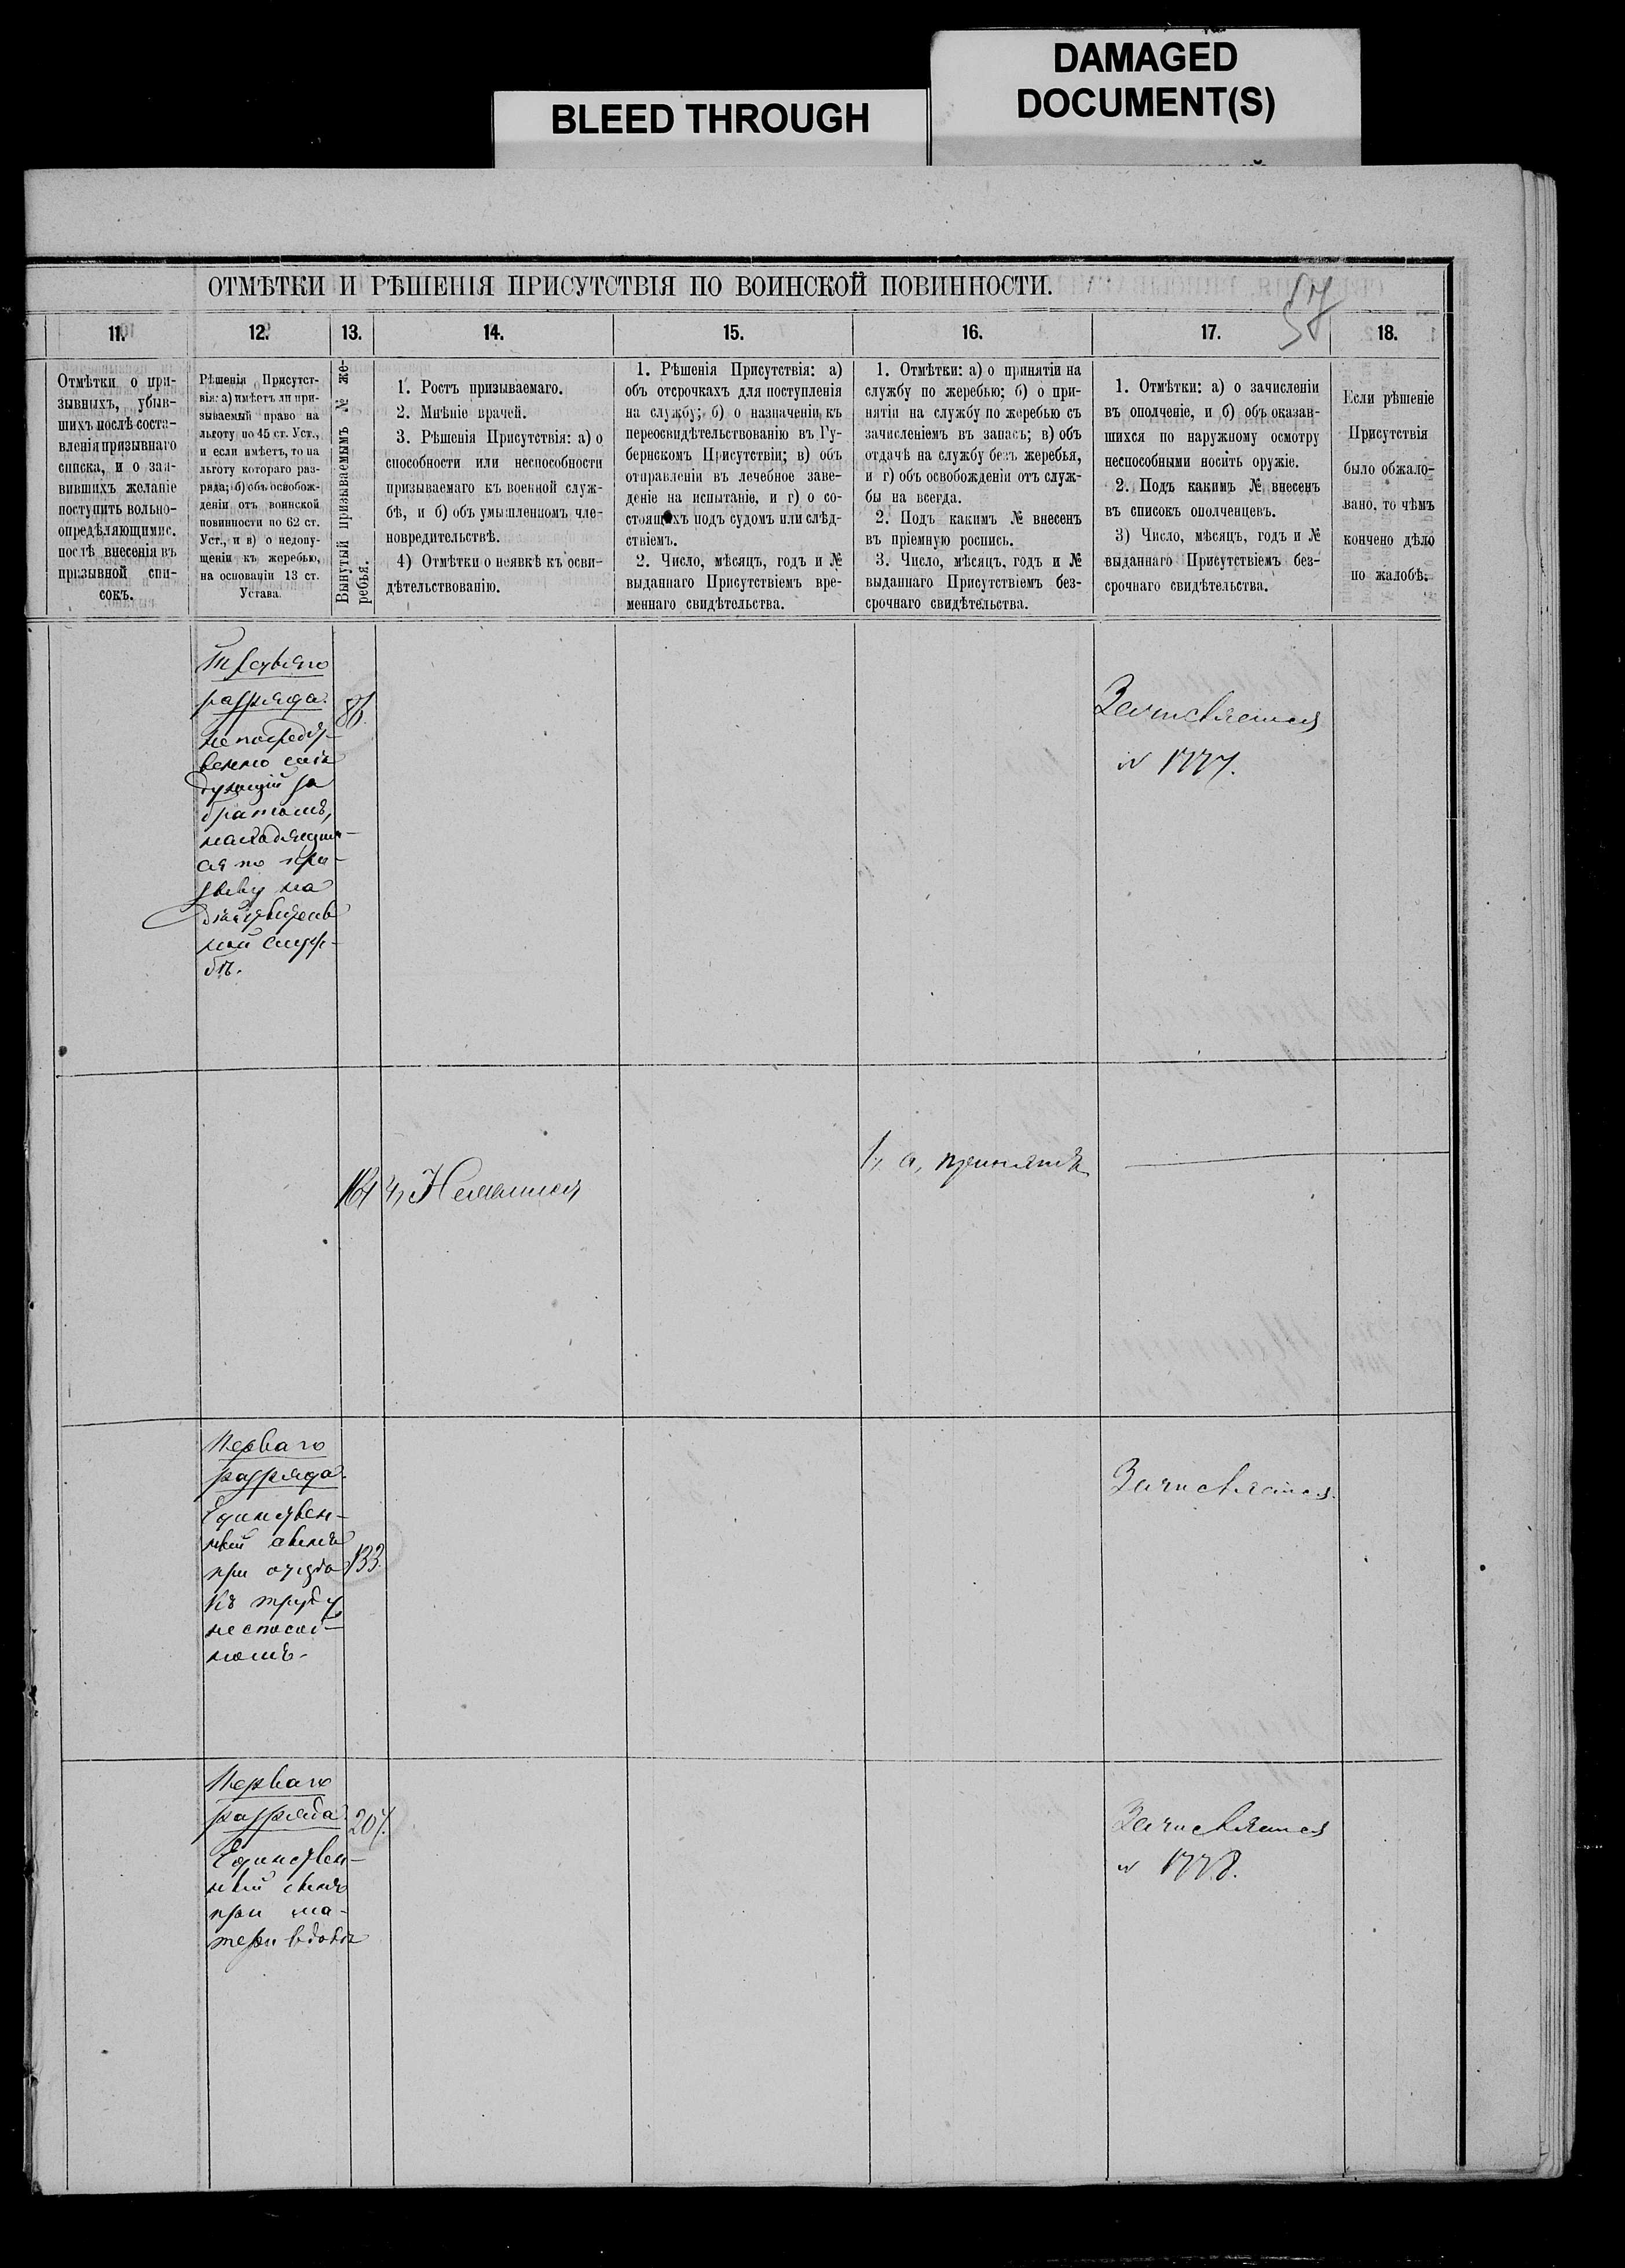 DAMAGED
DOCUMENT(S)
BLEED THROUGH
ОТМѢТКИ И РѢШЕНІЯ ПРИСУТСТВІЯ ПО ВОИНСКОЙ ПОВИННОСТИ.
57
11.
12.
13.
14.
15.
16.
17.
18.
Отмѣтки о при-
зывныхъ, убыв-
шихъ послѣ соста-
вленія призывнаго
списка, и о зая-
вившихъ желаніе
поступить вольно-
опредѣляющимис.
послѣ внесенія въ
призывной спи-
сокъ.
Рѣшенія Присутст-
вія: а) имѣетъ ли при-
зываемый право на
льготу по 45 ст. Уст.,
и если имѣетъ, то на
льготу котораго раз-
ряда; б) объ освобож-
деніи отъ воинской
повинности по 62 ст.
Уст., и в) о недопу-
щеніи къ жеребью,
на основаніи 13 ст.
Устава.
Вынутый призываемымъ № же-
ребья.
1. Ростъ призываемаго.
2. Мнѣніе врачей.
3. Рѣшенія Присутствія: а) о
способности или неспособности
призываемаго къ военной служ-
бѣ, и б) объ умышленномъ чле-
новредительствѣ.
4) Отмѣтки о неявкѣ къ осви-
дѣтельствованію.
1. Рѣшенія Присутствія: а)
объ отсрочкахъ для поступленія
на службу; б) о назначеніи къ
переосвидѣтельствованію въ Гу-
бернскомъ Присутствіи; в) объ
отправленіи въ лечебное заве-
деніе на испытаніе, и г) о со-
стоящихъ подъ судомъ или слѣд-
ствіемъ.
2. Число, мѣсяцъ, годъ и №
выданнаго Присутствіемъ вре-
меннаго свидѣтельства.
1. Отмѣтки: а) о принятіи на
службу по жеребью; б) о при-
нятіи на службу по жеребью съ
зачисленіемъ въ запасъ; в) объ
отдачѣ на службу безъ жеребья,
и г) объ освобожденіи отъ служ-
бы на всегда.
2. Подъ какимъ № внесенъ
въ пріемную роспись.
3. Число, мѣсяцъ, годъ и №
выданнаго Присутствіемъ без-
срочнаго свидѣтельства.
1. Отмѣтки: а) о зачисленіи
въ ополченіе, и б) объ оказав-
шихся по наружному осмотру
неспособными носить оружіе.
2. Подъ какимъ № внесенъ
въ списокъ ополченцевъ.
3) Число, мѣсяцъ, годъ и №
выданнаго Присутствіемъ без-
срочнаго свидѣтельства.
Если рѣшеніе
Присутствія
было обжало-
вано, то чѣмъ
кончено дѣло
по жалобѣ.
Третьяго
разряда.
Непосредст-
венно слѣ
дующій за
братомъ,
находящим-
ся по при-
зыву на
дѣйствитель
ной служ-
бѣ.
Зачисляется
№ 1777.
164
4, Неявился
1, а, принятъ
Перваго
разряда.
Единствен-
ный сынъ
при отцѣ
къ труду
неспособ-
номъ.
133.
Зачисляется.
Перваго
разряда.
Единствен-
ный сынъ
при ма-
тери вдовѣ
207.
Зачисляется
№ 1778.